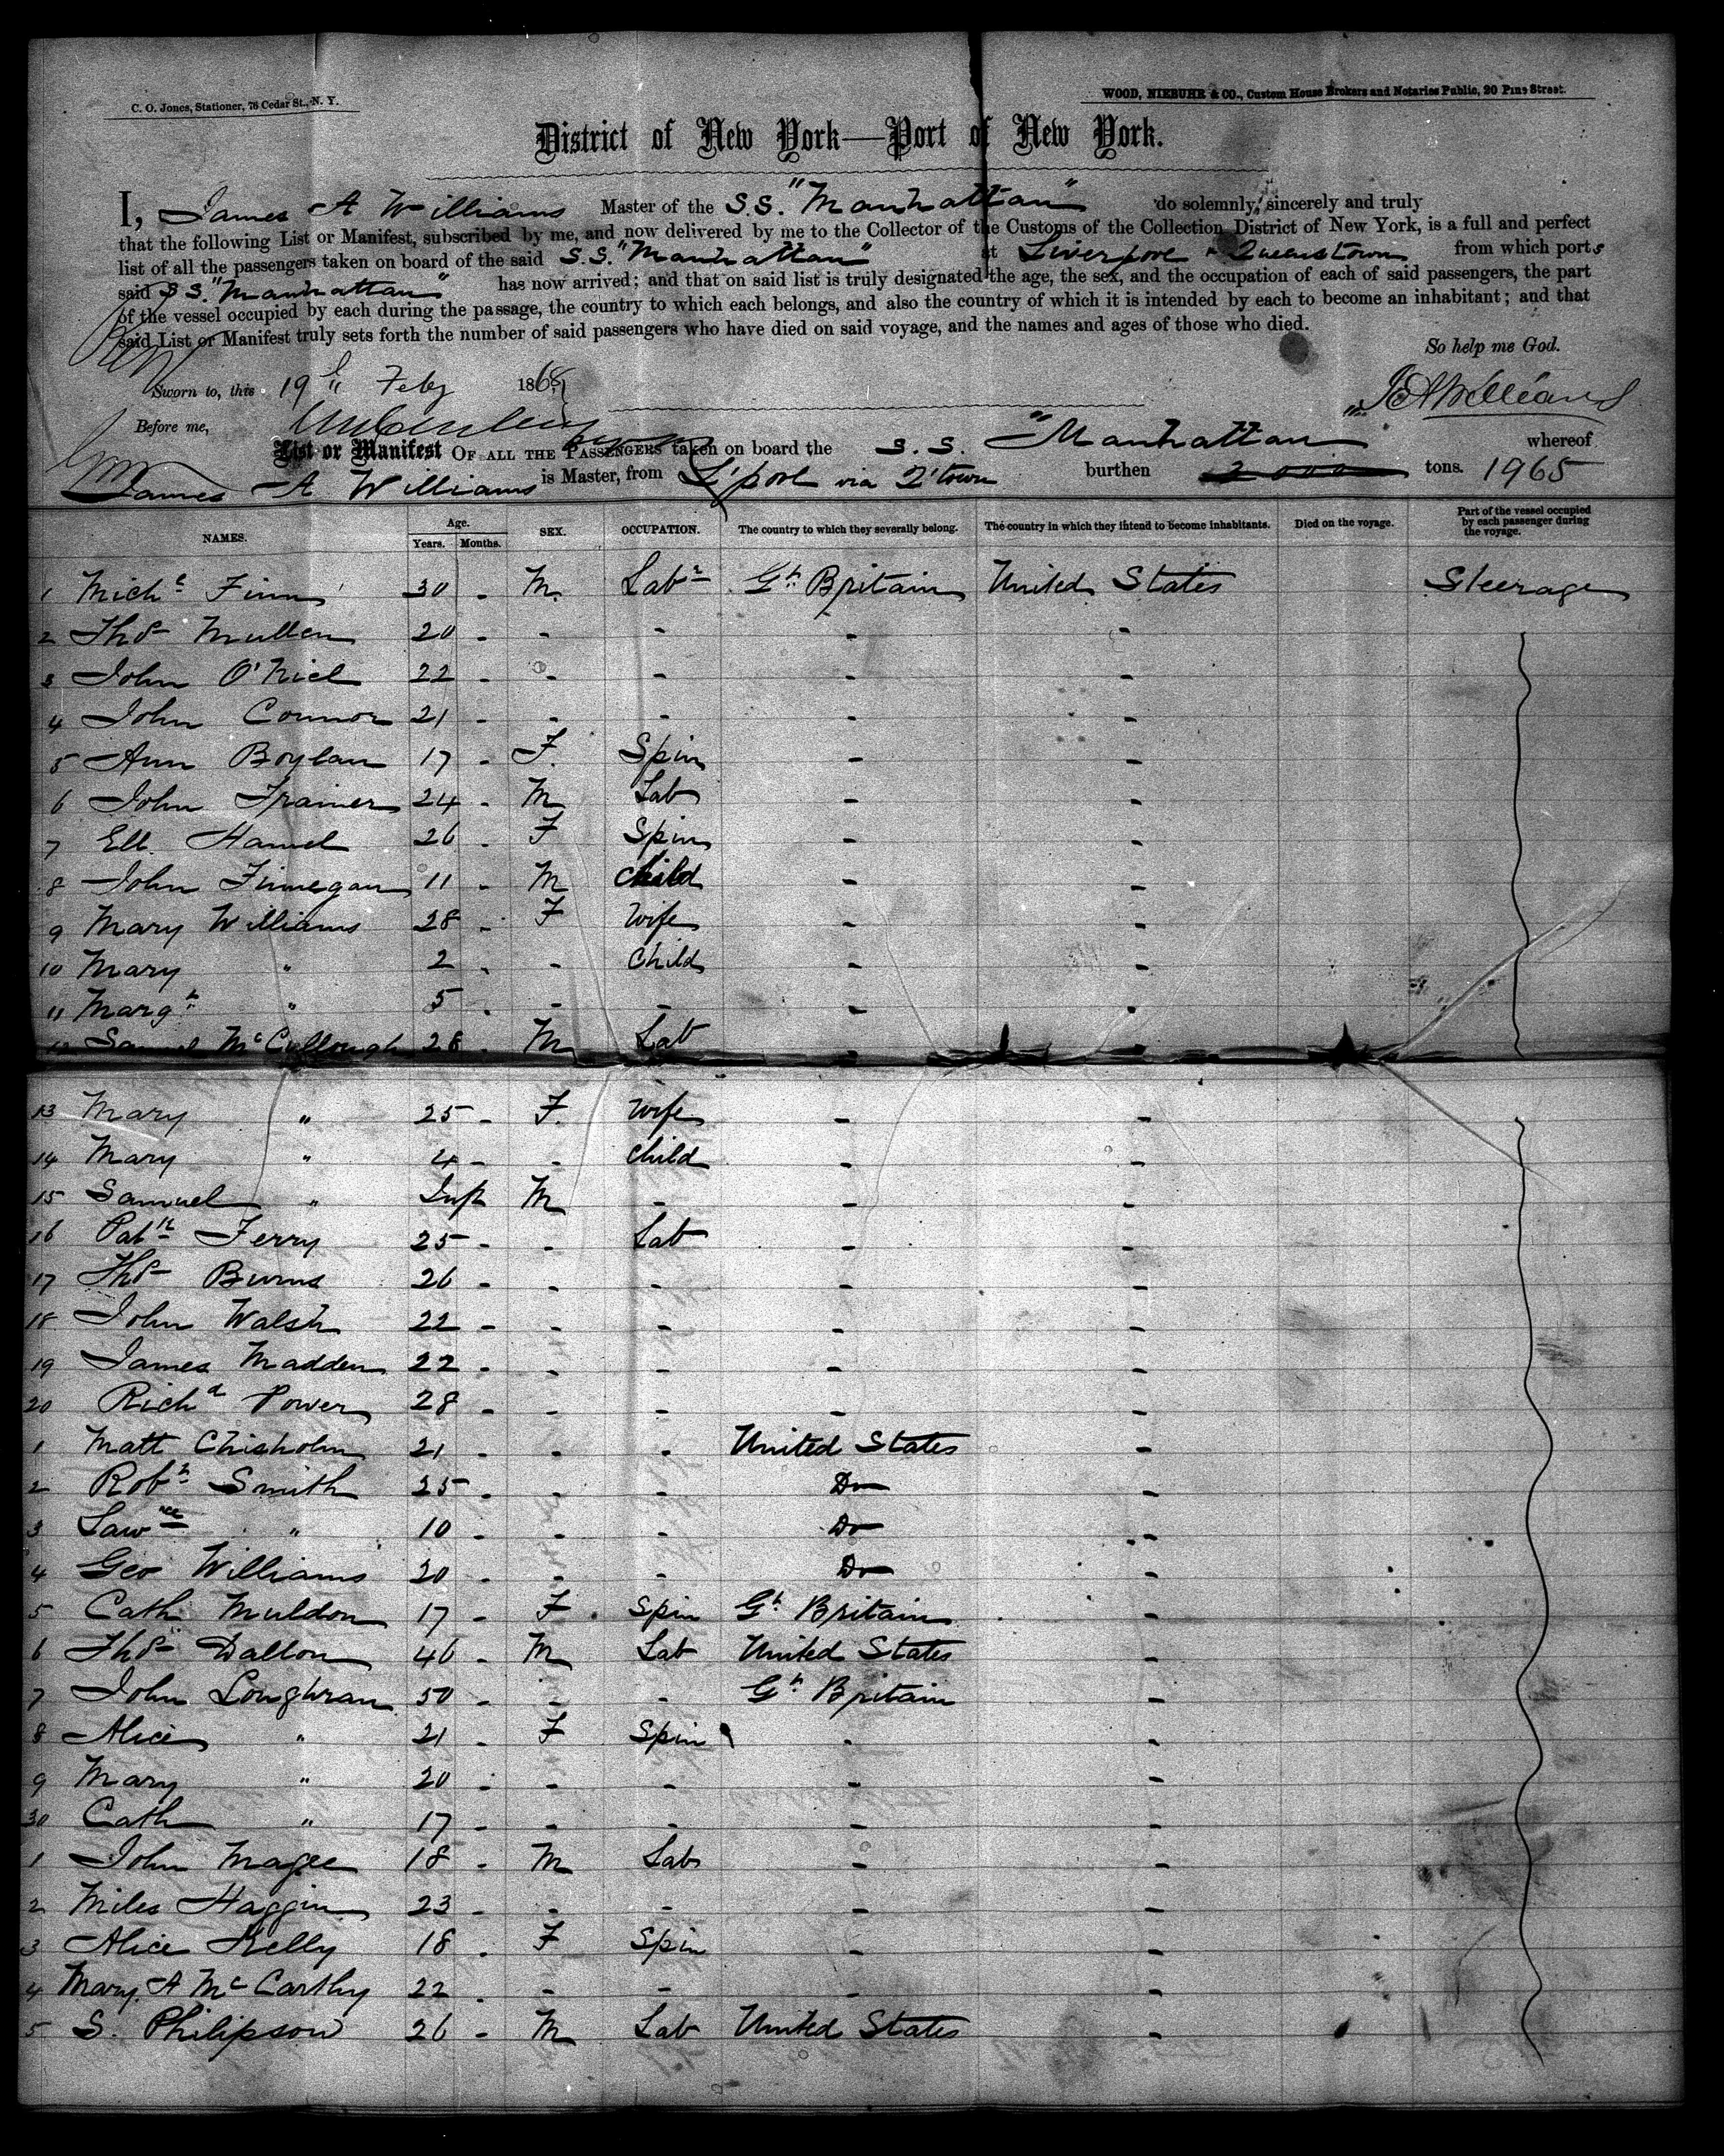 C. O. Jones, Stationer, 76 Cedar St., N. Y.
WOOD, NIEBUHR & CO., Custom House Brokers and Notaries Public, 20 Pine Street.
District of New York—Port of New York.
I, James A Williams Master of the S.S. "Manhattan" do solemnly, sincerely and truly
that the following List or Manifest, subscribed by me, and now delivered by me to the Collector of the Customs of the Collection District of New York, is a full and perfect
list of all the passengers taken on board of the said S.S. "Manhattan" at Liverpool & Queenstown from which ports
said S S. "Manhattan" has now arrived; and that on said list is truly designated the age, the sex, and the occupation of each of said passengers, the part
of the vessel occupied by each during the passage, the country to which each belongs, and also the country of which it is intended by each to become an inhabitant; and that
said List or Manifest truly sets forth the number of said passengers who have died on said voyage, and the names and ages of those who died.
So help me God.
Sworn to, this 19th Feby 1868
J A Williams
Before me,
List or Manifest OF ALL THE PASSENGERS taken on board the S. S. "Manhattan" whereof
James A Williams is Master, from L'pool via Q'town burthen 2000 tons. 1965
NAMES. Age. Years. Months. SEX. OCCUPATION. The country to which they severally belong. The country in which they intend to become inhabitants. Died on the voyage. Part of the vessel occupied by each passenger during the voyage.
1 Michl Finn 30 - M. Labr Gt Britain United States Steerage
2 Thos Mullen 20 - - - - -
3 John O'Niel 22 - - - - -
4 John Connor 21 - - - - -
5 Ann Boylan 17 - F. Spin - -
6 John Trainer 24 - M Lab - -
7 Ell. Hamel 26 - F Spin - -
8 John Finnegan 11 - M Child - -
9 Mary Williams 28 - F Wife - -
10 Mary " 2 - - Child - -
11 Margt " 5 - - - - -
12 Samuel McCullough 28 - M Lab - -
13 Mary " 25 - F. Wife - -
14 Mary " 4 - - Child - -
15 Samuel " Inft M - - -
16 Patk Ferry 25 - - Lab - -
17 Thos Burns 26 - - - - -
18 John Walsh 22 - - - - -
19 James Madden 22 - - - - -
20 Richd Power 28 - - - - -
1 Matt Chisholm 21 - - - United States -
2 Robt Smith 25 - - - Do -
3 Lawnce " 10 - - - Do -
4 Geo Williams 20 - - - Do -
5 Cath Muldon 17 - F. Spin Gt Britain -
6 Thos Dalton 46 - M Lab United States -
7 John Loughran 50 - - - Gt Britain -
8 Alice " 21 - F Spin - -
9 Mary " 20 - - - - -
30 Cath " 17 - - - - -
1 John Magee 18 - M Lab - -
2 Miles Haggin 23 - - - - -
3 Alice Kelly 18 - F Spin - -
4 Mary A McCarthy 22 - - - - -
5 S. Philipson 26 - M Lab United States -